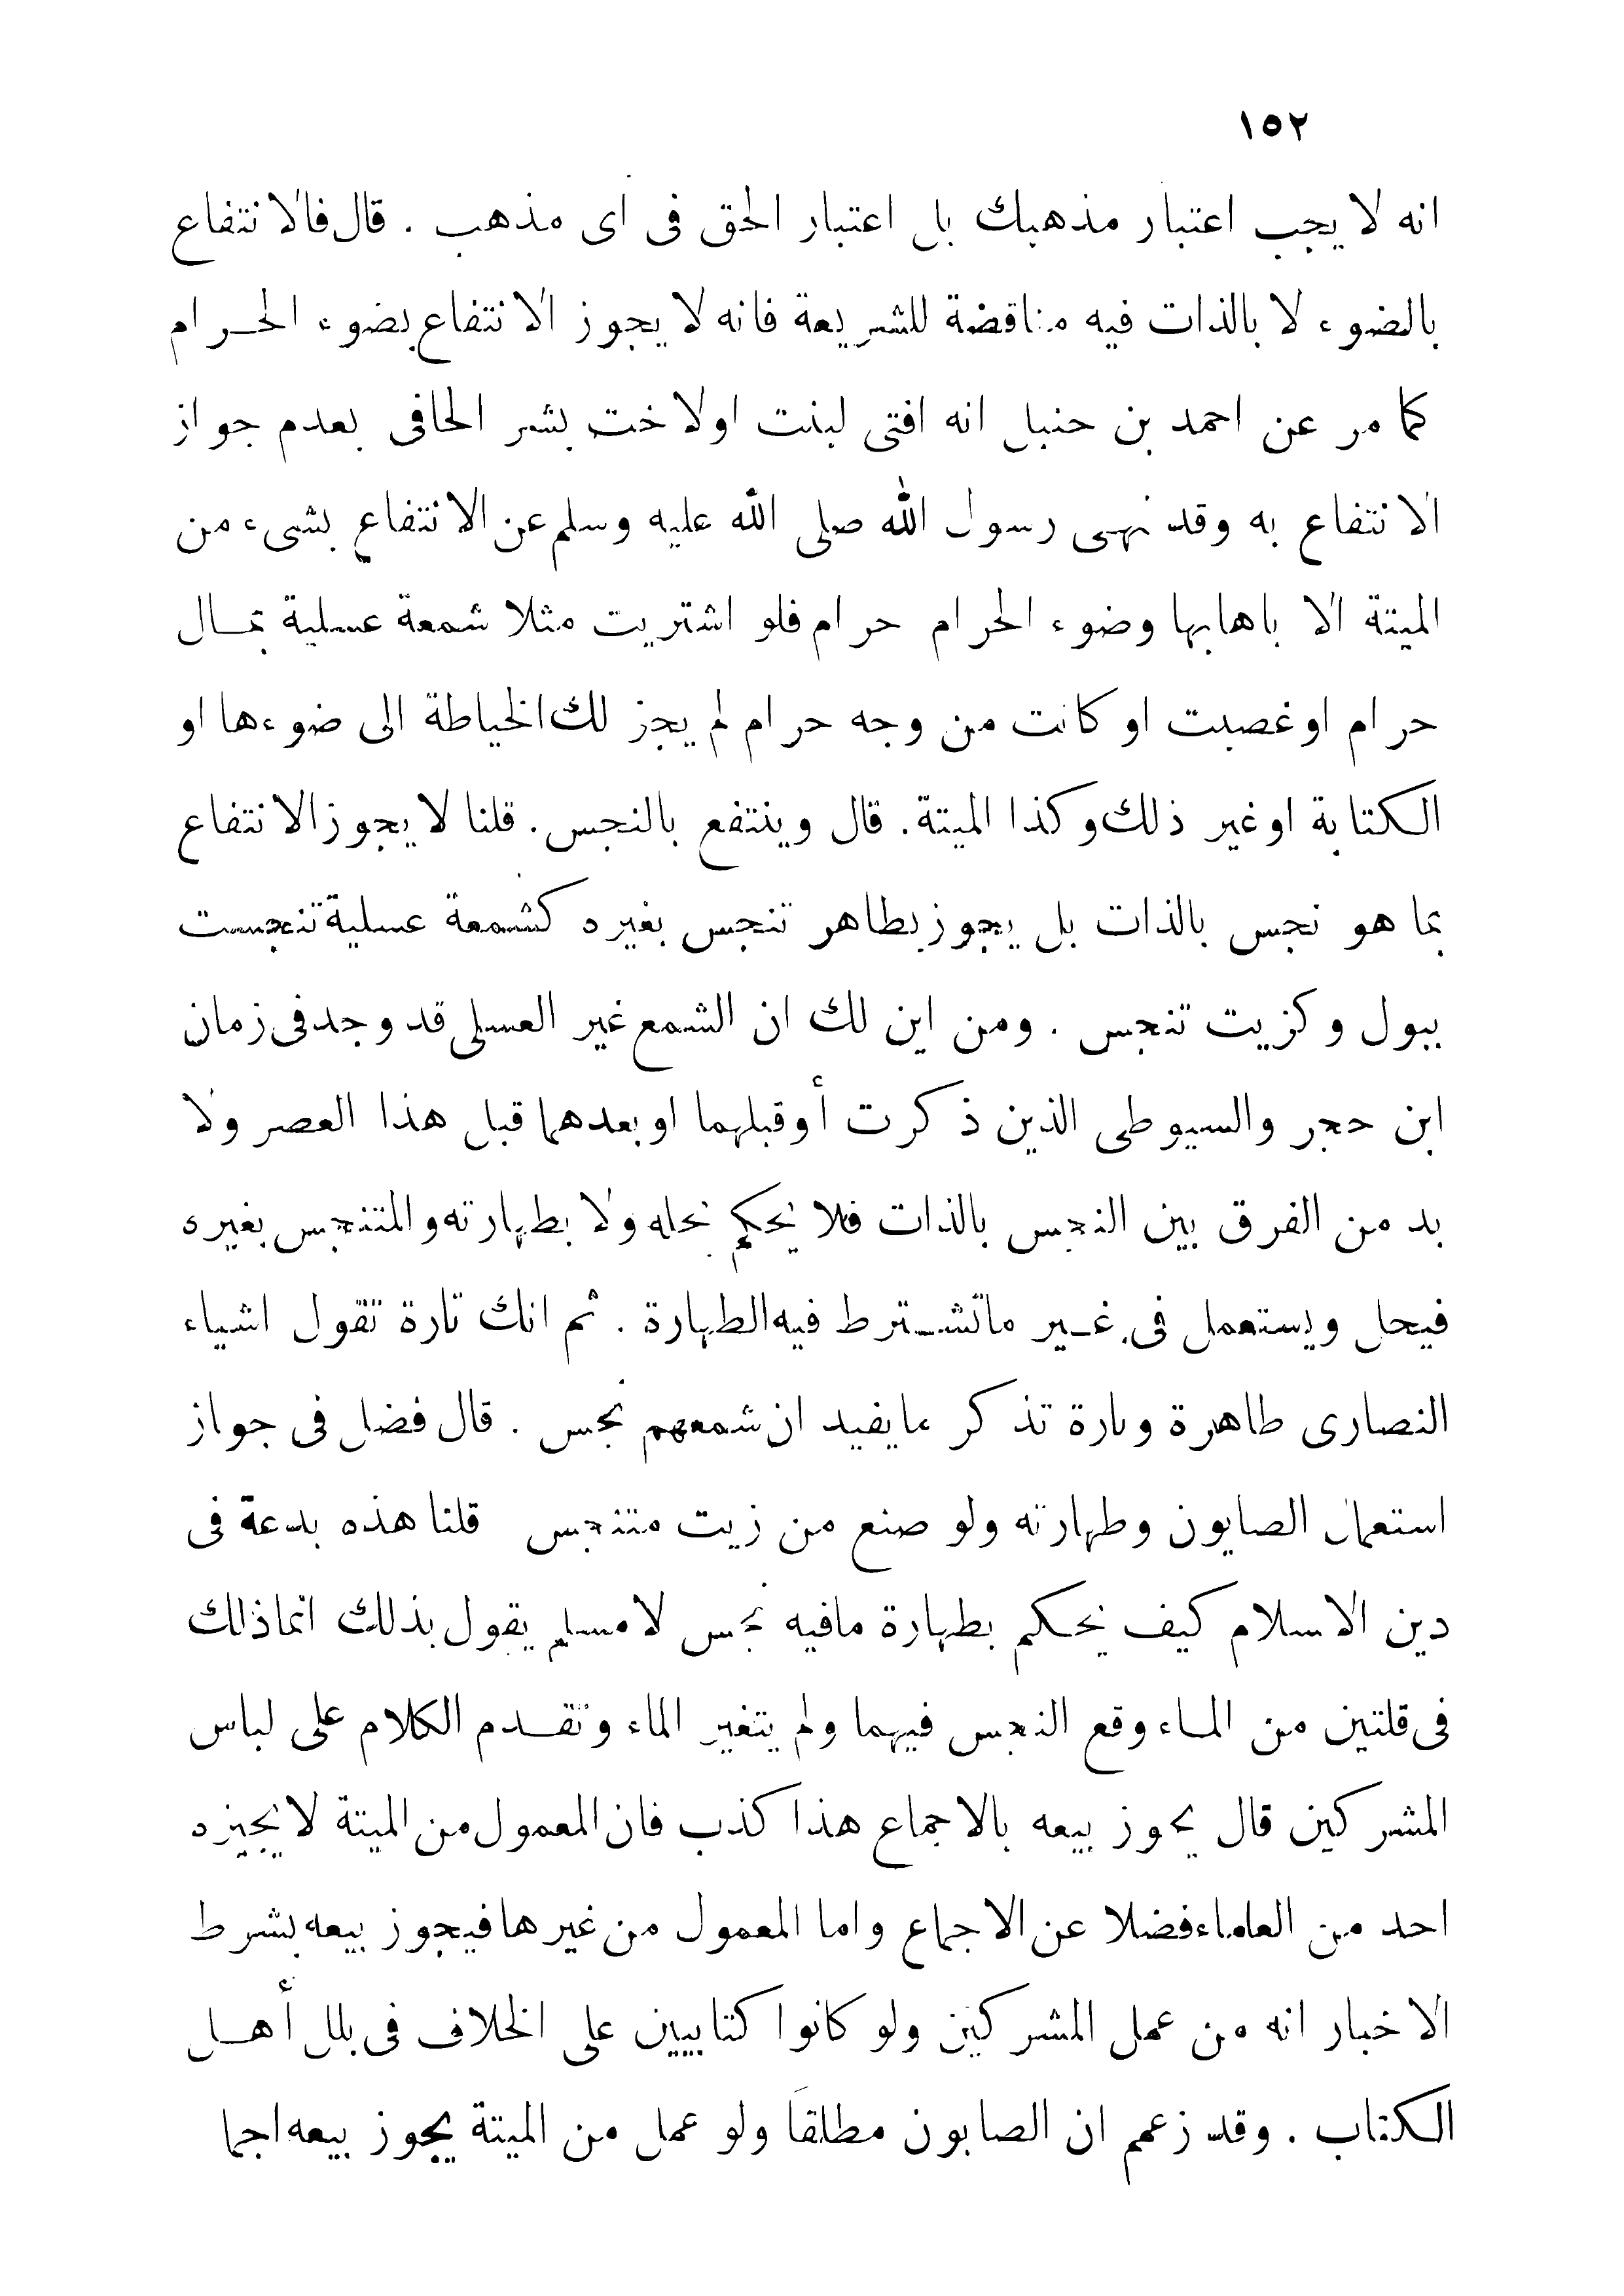 ١٥٢
انه لا يجب اعتبار مذهبك بل اعتبار الحق فى اى مذهب . قال فالانتفاع
بالضوء لا بالذات فيه مناقضة للشريعة فانه لا يجوز الانتفاع بضوء الحرام
كما مر عن احمد بن حنبل انه افتى لبنت اولاخت بشر الحافى بعدم جواز
الانتفاع به وقد نهى رسول الله صلى الله عليه وسلم عن الانتفاع بشىء من
الميتة الا باهابها وضوء الحرام حرام فلو اشتريت مثلا شمعة عسلية بمال
حرام اوغصبت او كانت من وجه حرام لم يجز لك الخياطة الى ضوءها او
الكتابة اوغير ذلك وكذا الميتة. قال وينتفع بالنجس. قلنا لا يجوز الانتفاع
بما هو نجس بالذات بل يجوز بطاهر تنجس بغيره كشمعة عسلية تنجست
ببول وكزيت تنجس . ومن اين لك ان الشمع غير العسلى قد وجد فى زمان
ابن حجر والسيوطى الذين ذكرت أوقبلهما او بعدهما قبل هذا العصر ولا
بد من الفرق بين النجس بالذات فلا يحكم بحله ولا بطهارته والمتنجس بغيره
فيحل ويستعمل فى غير ماتشترط فيه الطهارة . ثم انك تارة تقول اشياء
النصارى طاهرة وتارة تذكر مايفيد ان شمعهم نجس . قال فضل فى جواز
استعمال الصابون وطهارته ولو صنع من زيت متنجس قلنا هذه بدعة فى
دين الاسلام كيف يحكم بطهارة مافيه نجس لا مسلم يقول بذلك انماذلك
فى قلتين من الماء وقع النجس فيهما ولم يتغير الماء وتقدم الكلام على لباس
المشركين قال يجوز بيعه بالاجماع هذا كذب فان المعمول من الميتة لا يجيزه
احد من العلماء فضلا عن الاجماع واما المعمول من غيرها فيجوز بيعه بشرط
الاخبار انه من عمل المشركين ولو كانوا كتابيين على الخلاف فى بلل أهل
الكتاب . وقد زعم ان الصابون مطلقا ولو عمل من الميتة يجوز بيعه اجما